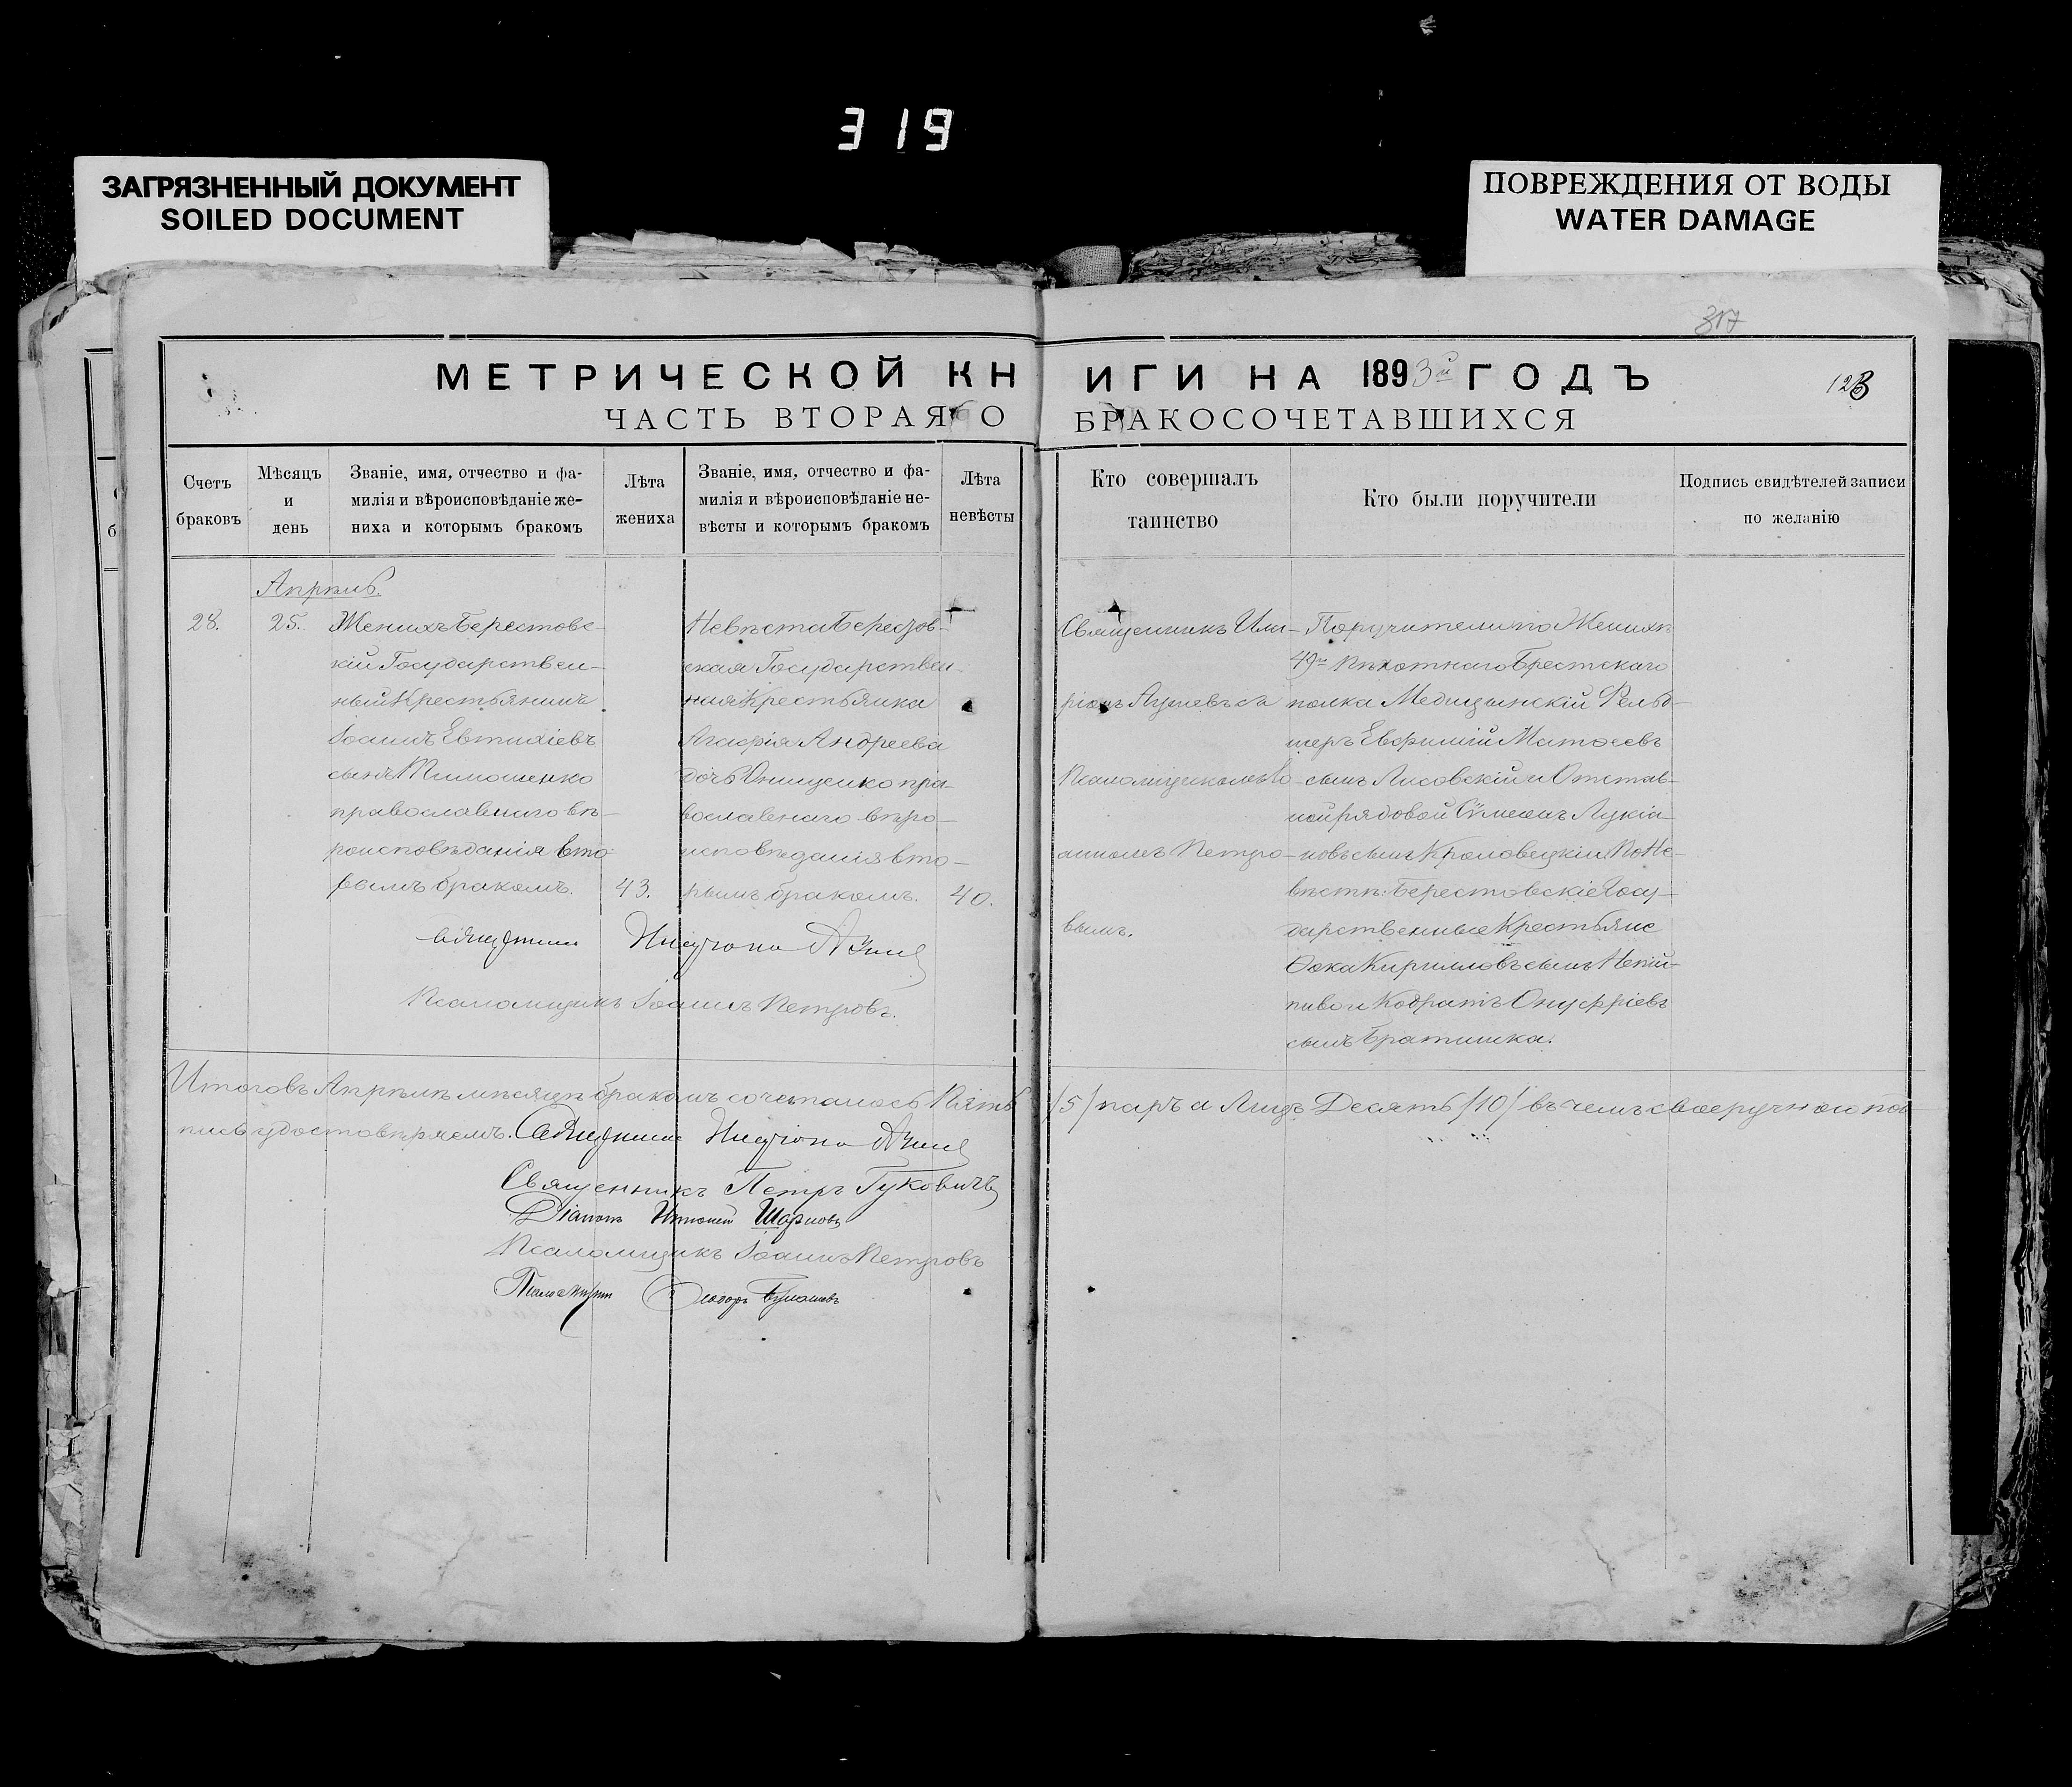 319
ЗАГРЯЗНЕННЫЙ ДОКУМЕНТ
SOILED DOCUMENT
ПОВРЕЖДЕНИЯ ОТ ВОДЫ
WATER DAMAGE
317
МЕТРИЧЕСКОЙ КНИГИ НА 1893й ГОДЪ
123
ЧАСТЬ ВТОРАЯ О БРАКОСОЧЕТАВШИХСЯ
Счетъ
браковъ
Мѣсяцъ
и
день
Званіе, имя, отчество и фа-
милія и вѣроисповѣданіе же-
ниха и которымъ бракомъ
Лѣта
жениха
Званіе, имя, отчество и фа-
милія и вѣроисповѣданіе не-
вѣсты и которымъ бракомъ
Лѣта
невѣсты
Кто совершалъ
таинство
Кто были поручители
Подпись свидѣтелей записи
по желанію
Апрѣль.
28.
25.
Женихъ Берестовс-
кій Государствен-
ный Крестьянинъ
Іоаннъ Евтихіевъ
сынъ Тимошенко
православнаго вѣ-
роисповѣданія вто-
рымъ бракомъ.
43.
Невѣста Березов-
ская Государствен-
ная Крестьянка
Агафія Андреева
дочь Онищенко пра-
вославнаго вѣро-
исповѣданія вто-
рымъ бракомъ.
40.
Священникъ Ила-
ріонъ съ
Псаломщикомъ Іо-
анномъ Петро-
вымъ.
Поручители по Женихѣ
49го Пѣхотнаго Брестскаго
полка Медицынскій Фельд-
шеръ Евфимій Матѳеевъ
сынъ Лисовскій и Отстав-
ной рядовой Сѵмеонъ Лукіа-
новъ сынъ Кроловецкій. По Не-
вѣстѣ: Берестовскіе Госу-
дарственные Крестьяне
Ѳока Кирилловъ сынъ Непій-
пиво и Кодратъ Онуфріевъ
сынъ Братишка.
Священникъ
Псаломщикъ Іоаннъ Петровъ.
Итого въ Апрѣлѣ мѣсяцѣ бракомъ сочеталось Пять /5/ паръ а Лицъ Десять /10/ въ чемъ своеручною под-
пись удостовѣряемъ. Священникъ
Священникъ Петръ Гуковичъ
Діаконъ
Псаломщикъ Іоаннъ Петровъ
Псаломщикъ